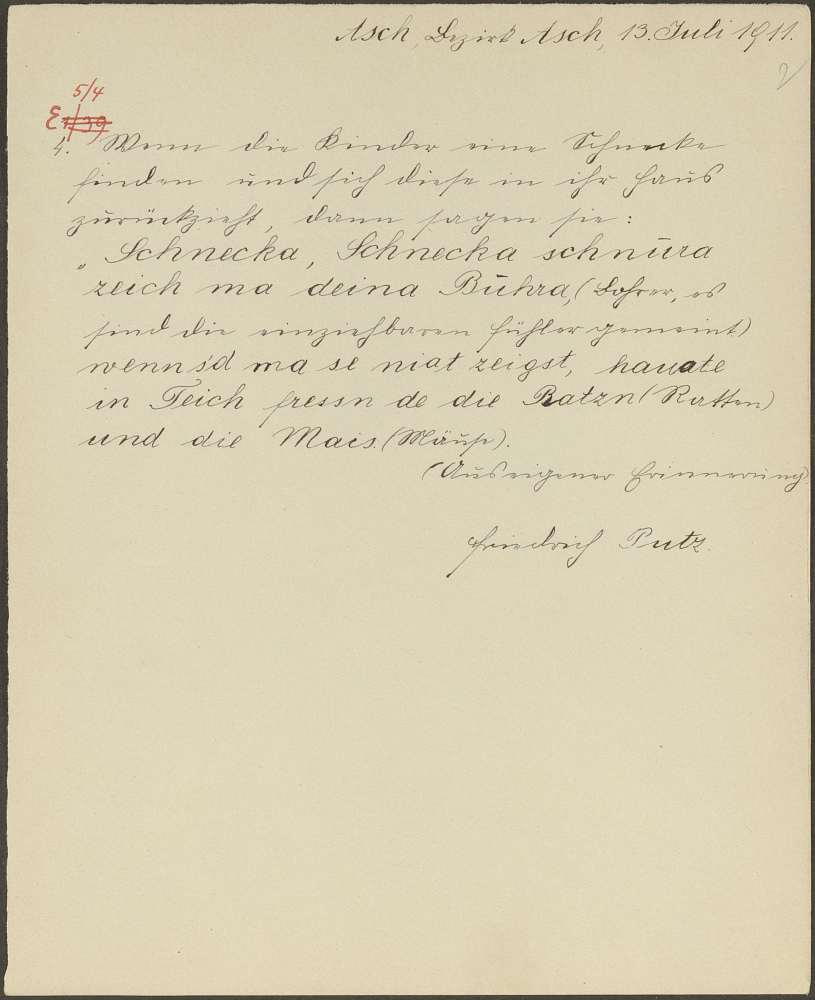 Asch, Bezirk Asch, 13. Juli 1911.
2
5/4
E 1/39
4. Wenn die Kinder eine Schnecke
finden und sich diese in ihr Haus
zurückzieht, dann sagen sie:
„Schnecka, Schnecka schnüra
zeich ma deina Bühra, (Bohrer, es
sind die einziehbaren Fühler gemeint)
wennsd ma se niat zeigst, hauate
in Teich fressn de die Ratzn (Ratten)
und die Mais. (Mäuse).
(Aus eigener Erinnerung)
Friedrich Putz.